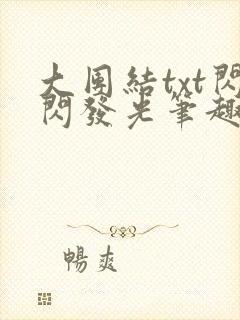 大團結txt閃
閃發光筆趣
暢爽